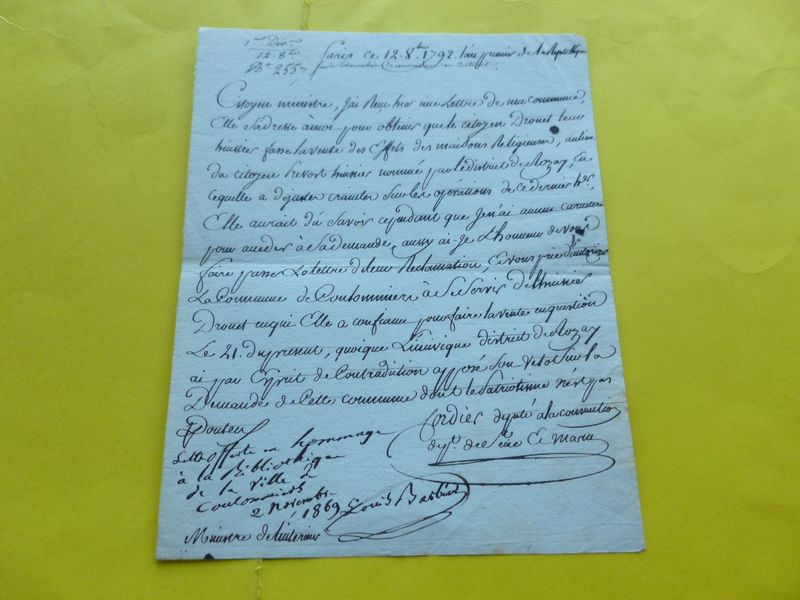 1ere Div.on
12. 8bre
No. 2557
Paris ce 12. 8bre. 1792. l'an premier de la Republique
Citoyen ministre, J'ai Reçu hier une Lettre de ma commune,
Elle s'adresse à moi pour obtenir que le citoyen Drouet leur
huissier fasse la vente des Effets des maisons Religieuses, au lieu
du citoyen Prevost huissier nommé par le district de Rozay,
Laquelle a des justes craintes sur les opérations de ce dernier
Elle aurait dû savoir cependant que Je n'ai aucun caractere
pour acceder à sa demande, aussi ai-Je L'honneur de vous
faire passer La lettre de leur Reclamation, Et vous prie d'autoriser
La Commune de Coulommiers à se servir de l'huissier
Drouet en qui Elle a confiance pour faire la vente en question
Le 21. du present, quoique L'incivique district de Rozay
ai par Esprit de Contradiction apposé son Veto sur la
Demande de Cette commune dont le Patriotisme n'est pas
Douteux
Cordier député à la convention
dept. de Seine Et Marne
Lettre offerte en hommage
à la Bibliothèque
de la ville de
Coulommiers
2 novembre
1869 Louis Barbier
Ministre de l'interieur